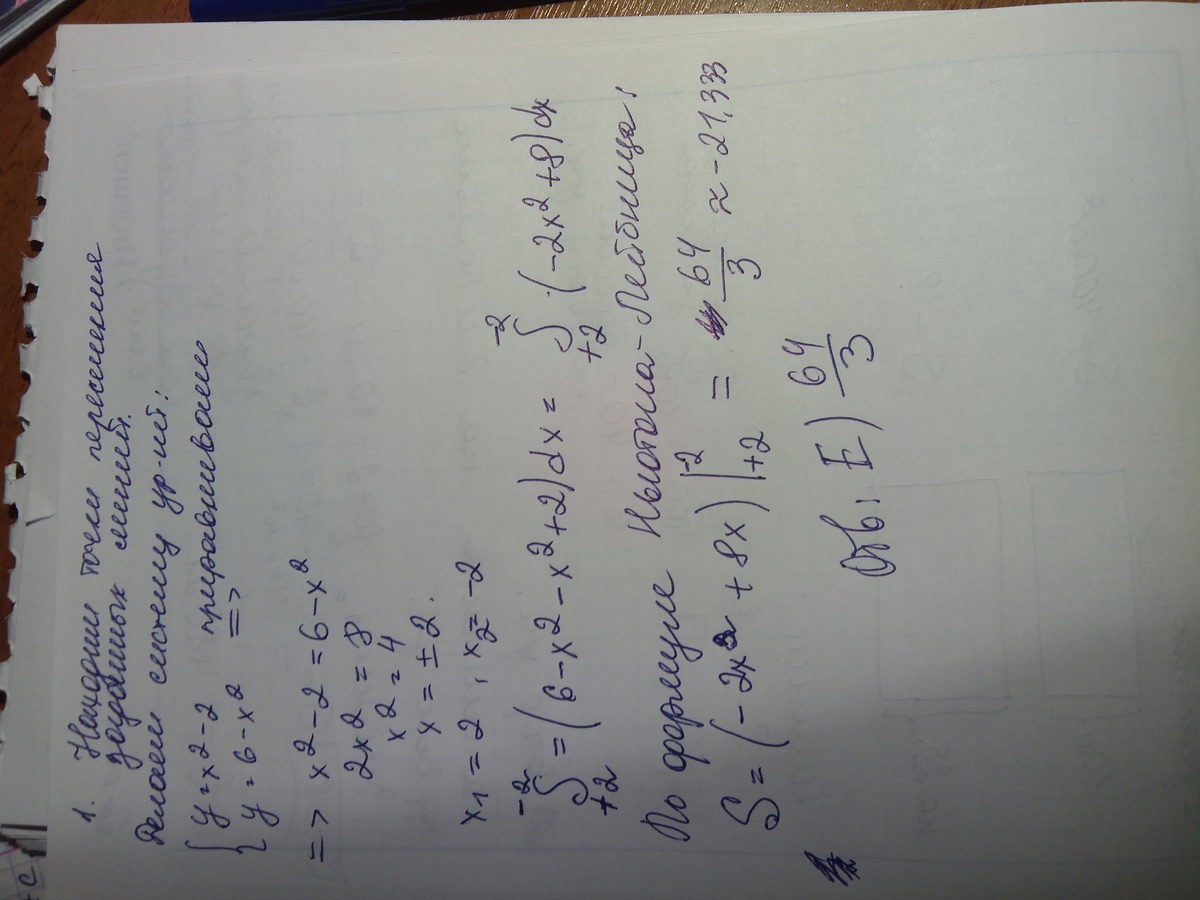 1. Находим точки пересечения
заданных линий.
Делаем систему ур-ий:
{ y = x² - 2 приравниваем
{ y = 6 - x² =>
=> x² - 2 = 6 - x²
2x² = 8
x² = 4
x = ± 2.
x₁ = 2 , x₂ = -2
∫₊₂⁻² = (6 - x² - x² + 2) dx = ∫₊₂⁻² (-2x² + 8) dx
По формуле Ньютона - Лейбница:
S = (-2x + 8x) |₊₂⁻² = 64/3 ≈ -21,333
Отв: E) 64/3